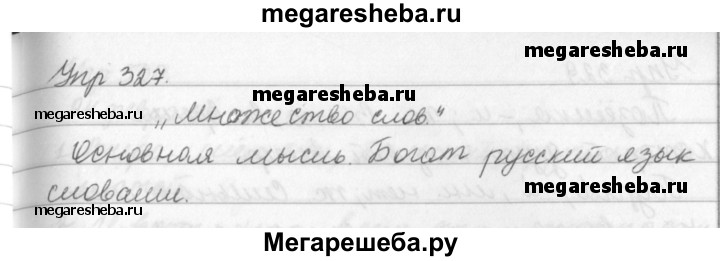 megaresheba.ru
Упр 327.
megaresheba.ru
megaresheba.ru
megaresheba.ru
„Множество слов."
Основная мысль. Богат русский язык
megaresheba.ru
словами.
megaresheba.ru
Мегарешеба.ру